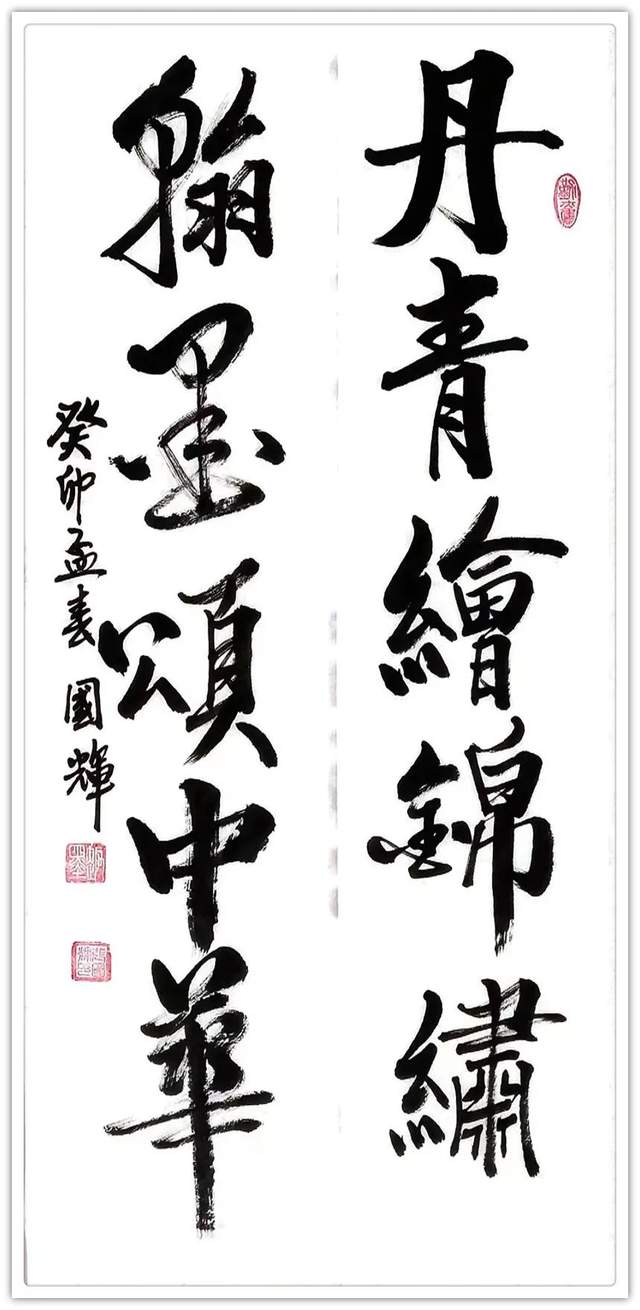 丹青繪錦繡
翰墨頌中華
癸卯孟春 國輝